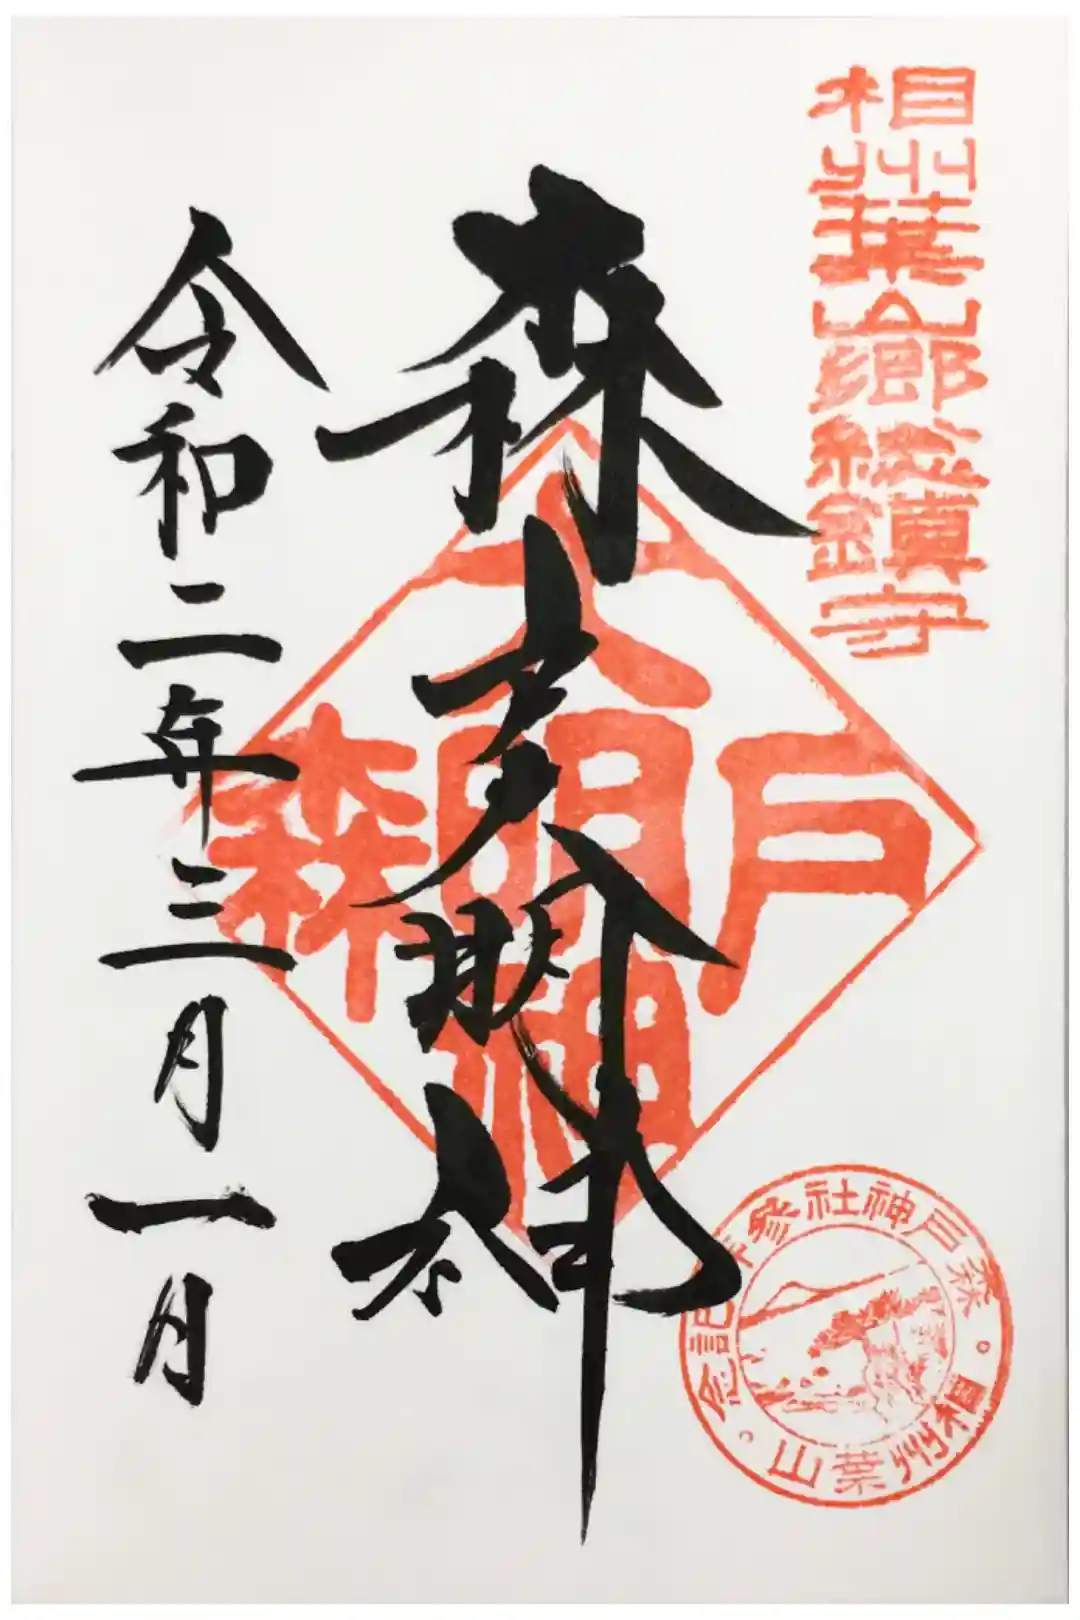 相州葉山郷総鎮守
森戸大明神
令和二年三月一日
森戸大明神
森戸神社参拝記念。
相州葉山。